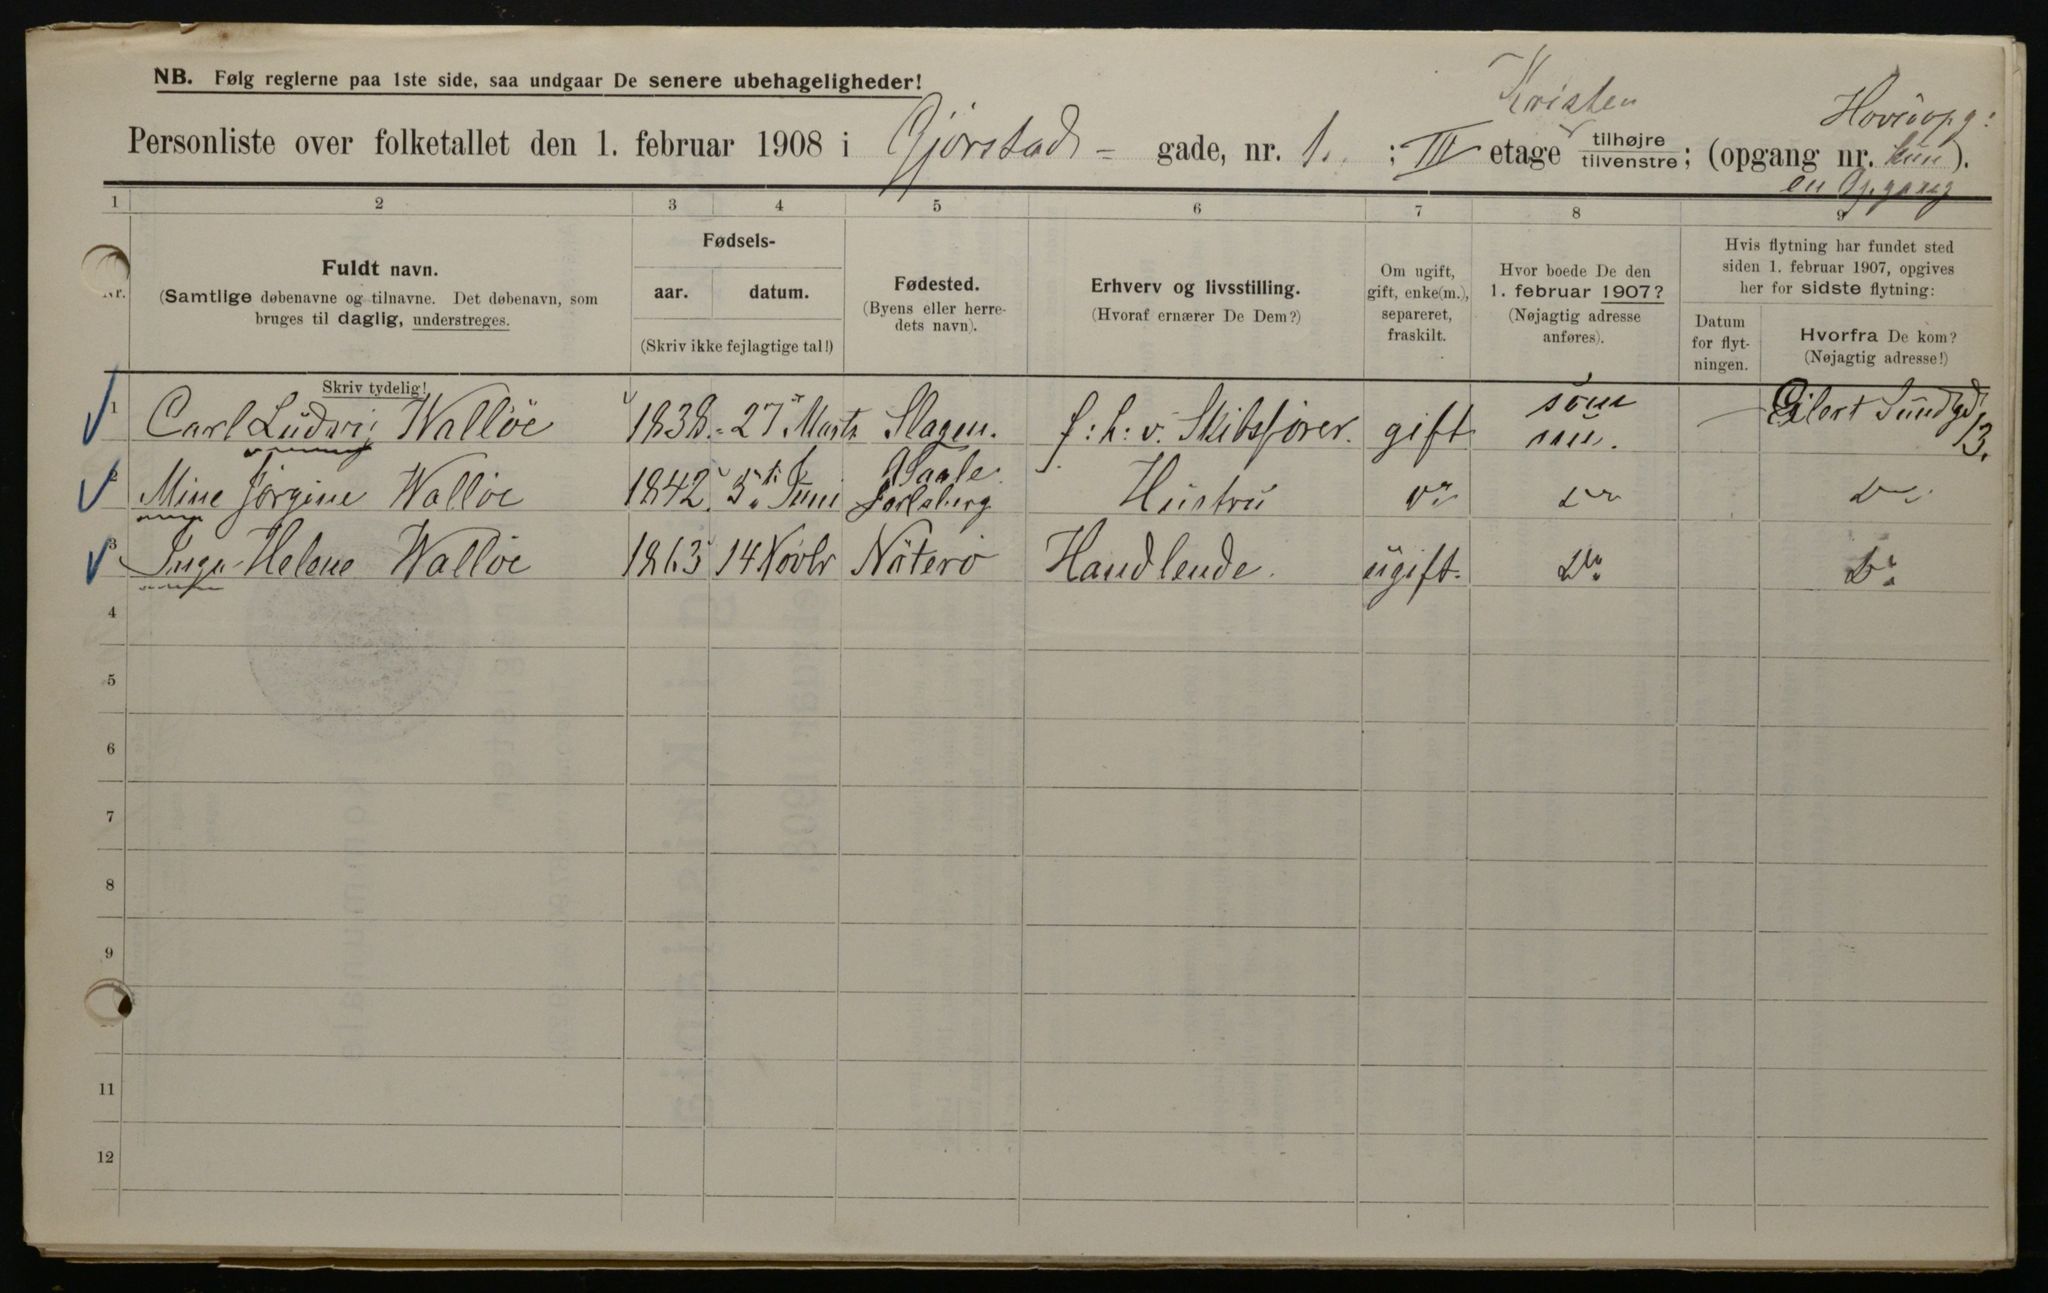 NB. Følg reglerne paa 1ste side, saa undgaar De senere ubehageligheder!
Kristen
Hovedopg:
Personliste over folketallet den 1. februar 1908 i Gjörstads - gade, nr. 1. ; III etage tilhøjre tilvenstre; (opgang nr. kun).
en Opgang
1 2 3 4 5 6 7 8 9
Nr.
Fuldt navn.
(Samtlige døbenavne og tilnavne. Det døbenavn, som
bruges til daglig, understreges.
Skriv tydelig!
Fødsels-
aar. datum.
(Skriv ikke fejlagtige tal!)
Fødested.
(Byens eller herre-
dets navn).
Erhverv og livsstilling.
(Hvoraf ernærer De Dem?)
Om ugift,
gift, enke(m.),
separeret,
fraskilt.
Hvor boede De den
1. februar 1907?
(Nøjagtig adresse
anføres).
Hvis flytning har fundet sted
siden 1. februar 1907, opgives
her for sidste flytning:
Datum
for flyt-
ningen.
Hvorfra De kom?
(Nøjagtig adresse!)
1 Carl Ludvig Wallöe 1838. 27 Marts Slagen. f: h: v. Skibsförer. gift som nu. Eilert Sundgd 13.
2 Mine Jörgine Wallöe 1842. 5. Juni Jarlsberg Hustru Do Do Do
3 Inga Helene Wallöe 1863 14 Novbr Nöterö Handlende. ugift. Do Do
4
5
6
7
8
9
11
12